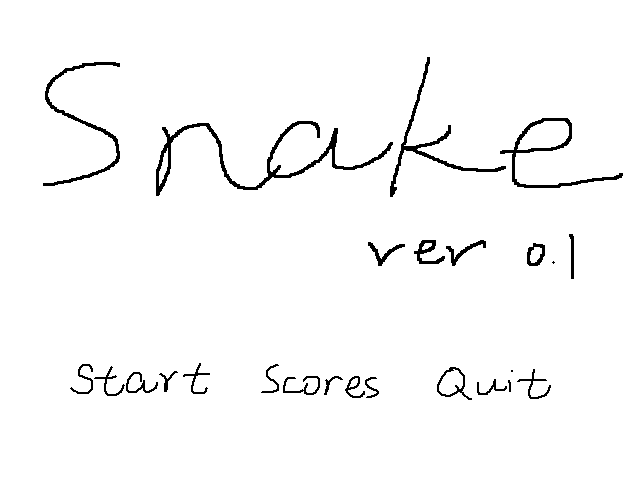 Snake
ver 0.1
Start Scores Quit